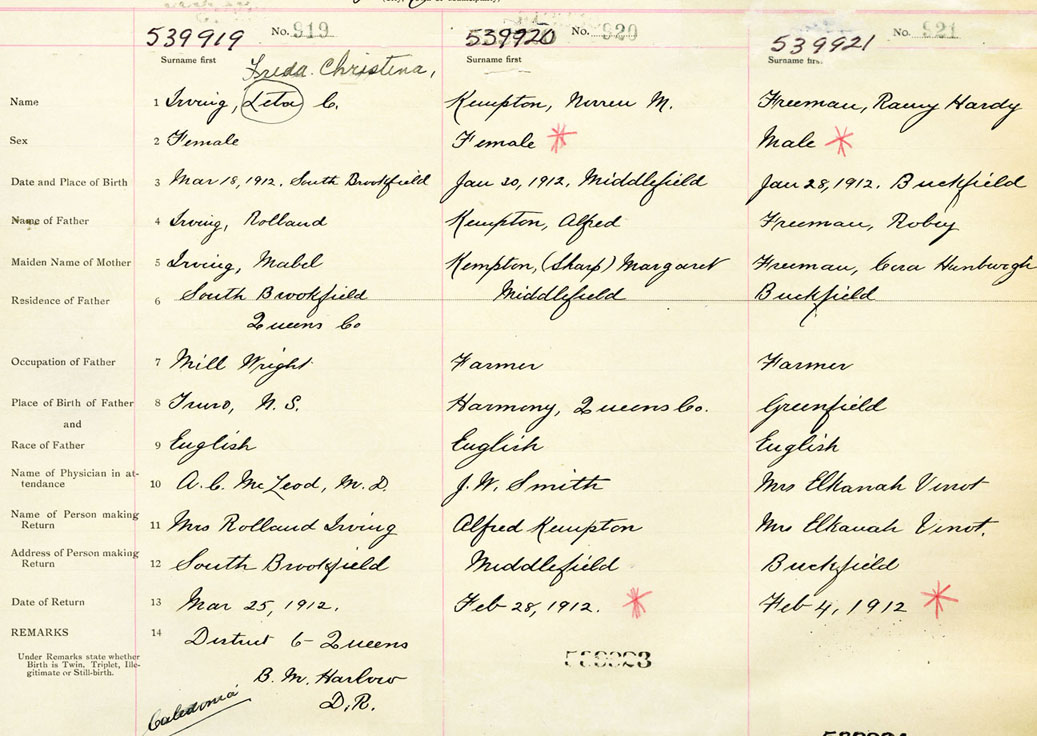 539919 No. 919
539920 No. 920
539921 No. 921
Surname first
Surname first
Surname first
Freda. Christina,
Name 1 Irving, Leta C. Kempton, Norren M. Freeman, Ramy Hardy
Sex 2 Female Female Male
Date and Place of Birth 3 Mar 18, 1912. South Brookfield Jan 30, 1912. Middlefield Jan 28, 1912. Buckfield
Name of Father 4 Irving, Rolland Kempton, Alfred Freeman, Robey
Maiden Name of Mother 5 Irving, Mabel Kempton, (Sharp) Margaret Freeman, Cora
Residence of Father 6 South Brookfield Middlefield Buckfield
Queens Co
Occupation of Father 7 Mill Wright Farmer Farmer
Place of Birth of Father 8 Truro, N.S. Harmony, Queens Co. Greenfield
and
Race of Father 9 English English English
Name of Physician in at-
tendance 10 A.C. McLeod, M.D. J.W. Smith Mrs Elkanah Vinot
Name of Person making
Return 11 Mrs Rolland Irving Alfred Kempton Mrs Elkanah Vinot.
Address of Person making
Return 12 South Brookfield Middlefield Buckfield
Date of Return 13 Mar 25, 1912. Feb 28, 1912. Feb 4, 1912
REMARKS 14 District 6 - Queens
Under Remarks state whether
Birth is Twin, Triplet, Ille-
gitimate or Still-birth.
B. M. Harlow
D.R.
Caledonia